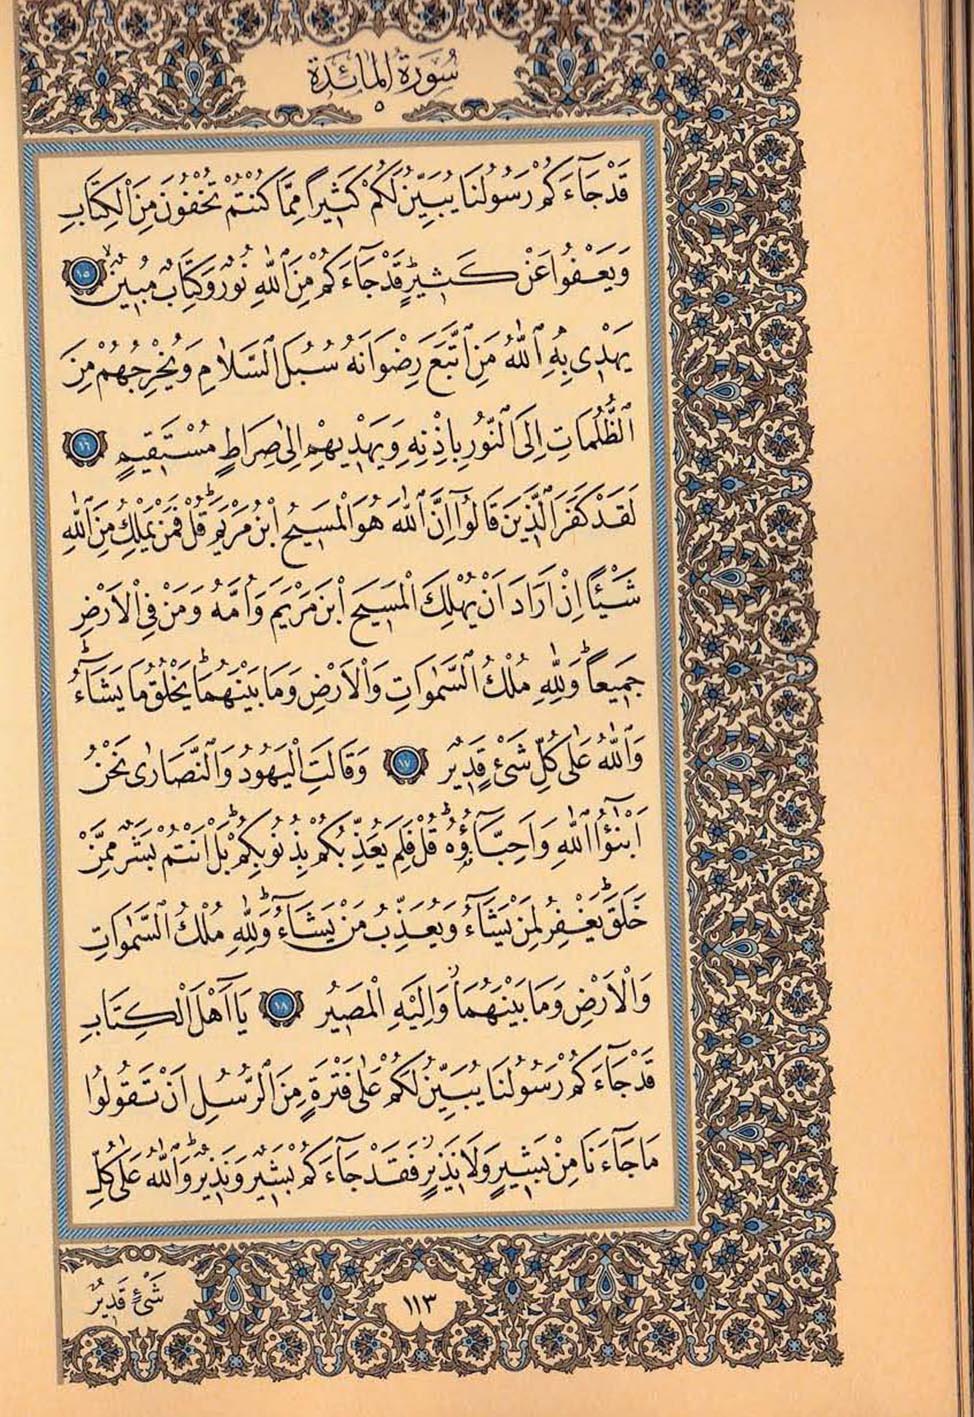 سُورَةُ الْمَائِدَةِ
٥
قَدْ جَآءَكُمْ رَسُولُنَا يُبَيِّنُ لَكُمْ كَثِيرًا مِمَّا كُنْتُمْ تُخْفُونَ مِنَ الْكِتَابِ
وَيَعْفُوا عَنْ كَثِيرٍ قَدْ جَآءَكُمْ مِنَ اللّٰهِ نُورٌ وَكِتَابٌ مُبِينٌ ١٥
يَهْدِى بِهِ اللّٰهُ مَنِ اتَّبَعَ رِضْوَانَهُ سُبُلَ السَّلَامِ وَيُخْرِجُهُمْ مِنَ
الظُّلُمَاتِ اِلَى النُّورِ بِاِذْنِهِ وَيَهْدِيهِمْ اِلٰى صِرَاطٍ مُسْتَقِيمٍ ١٦
لَقَدْ كَفَرَ الَّذِينَ قَالُوٓا اِنَّ اللّٰهَ هُوَ الْمَسِيحُ ابْنُ مَرْيَمَ قُلْ فَمَنْ يَمْلِكُ مِنَ اللّٰهِ
شَيْئًا اِنْ اَرَادَ اَنْ يُهْلِكَ الْمَسِيحَ ابْنَ مَرْيَمَ وَاُمَّهُ وَمَنْ فِى الْاَرْضِ
جَمِيعًا وَلِلّٰهِ مُلْكُ السَّمٰوَاتِ وَالْاَرْضِ وَمَا بَيْنَهُمَا يَخْلُقُ مَا يَشَآءُ
وَاللّٰهُ عَلٰى كُلِّ شَىْءٍ قَدِيرٌ ١٧ وَقَالَتِ الْيَهُودُ وَالنَّصَارٰى نَحْنُ
اَبْنٰٓؤُا اللّٰهِ وَاَحِبَّآؤُهُ قُلْ فَلِمَ يُعَذِّبُكُمْ بِذُنُوبِكُمْ بَلْ اَنْتُمْ بَشَرٌ مِمَّنْ
خَلَقَ يَغْفِرُ لِمَنْ يَشَآءُ وَيُعَذِّبُ مَنْ يَشَآءُ وَلِلّٰهِ مُلْكُ السَّمٰوَاتِ
وَالْاَرْضِ وَمَا بَيْنَهُمَا وَاِلَيْهِ الْمَصِيرُ ١٨ يَآ اَهْلَ الْكِتَابِ
قَدْ جَآءَكُمْ رَسُولُنَا يُبَيِّنُ لَكُمْ عَلٰى فَتْرَةٍ مِنَ الرُّسُلِ اَنْ تَقُولُوا
مَا جَآءَنَا مِنْ بَشِيرٍ وَلَا نَذِيرٍ فَقَدْ جَآءَكُمْ بَشِيرٌ وَنَذِيرٌ وَاللّٰهُ عَلٰى كُلِّ
شَىْءٍ قَدِيرٌ
١١٣